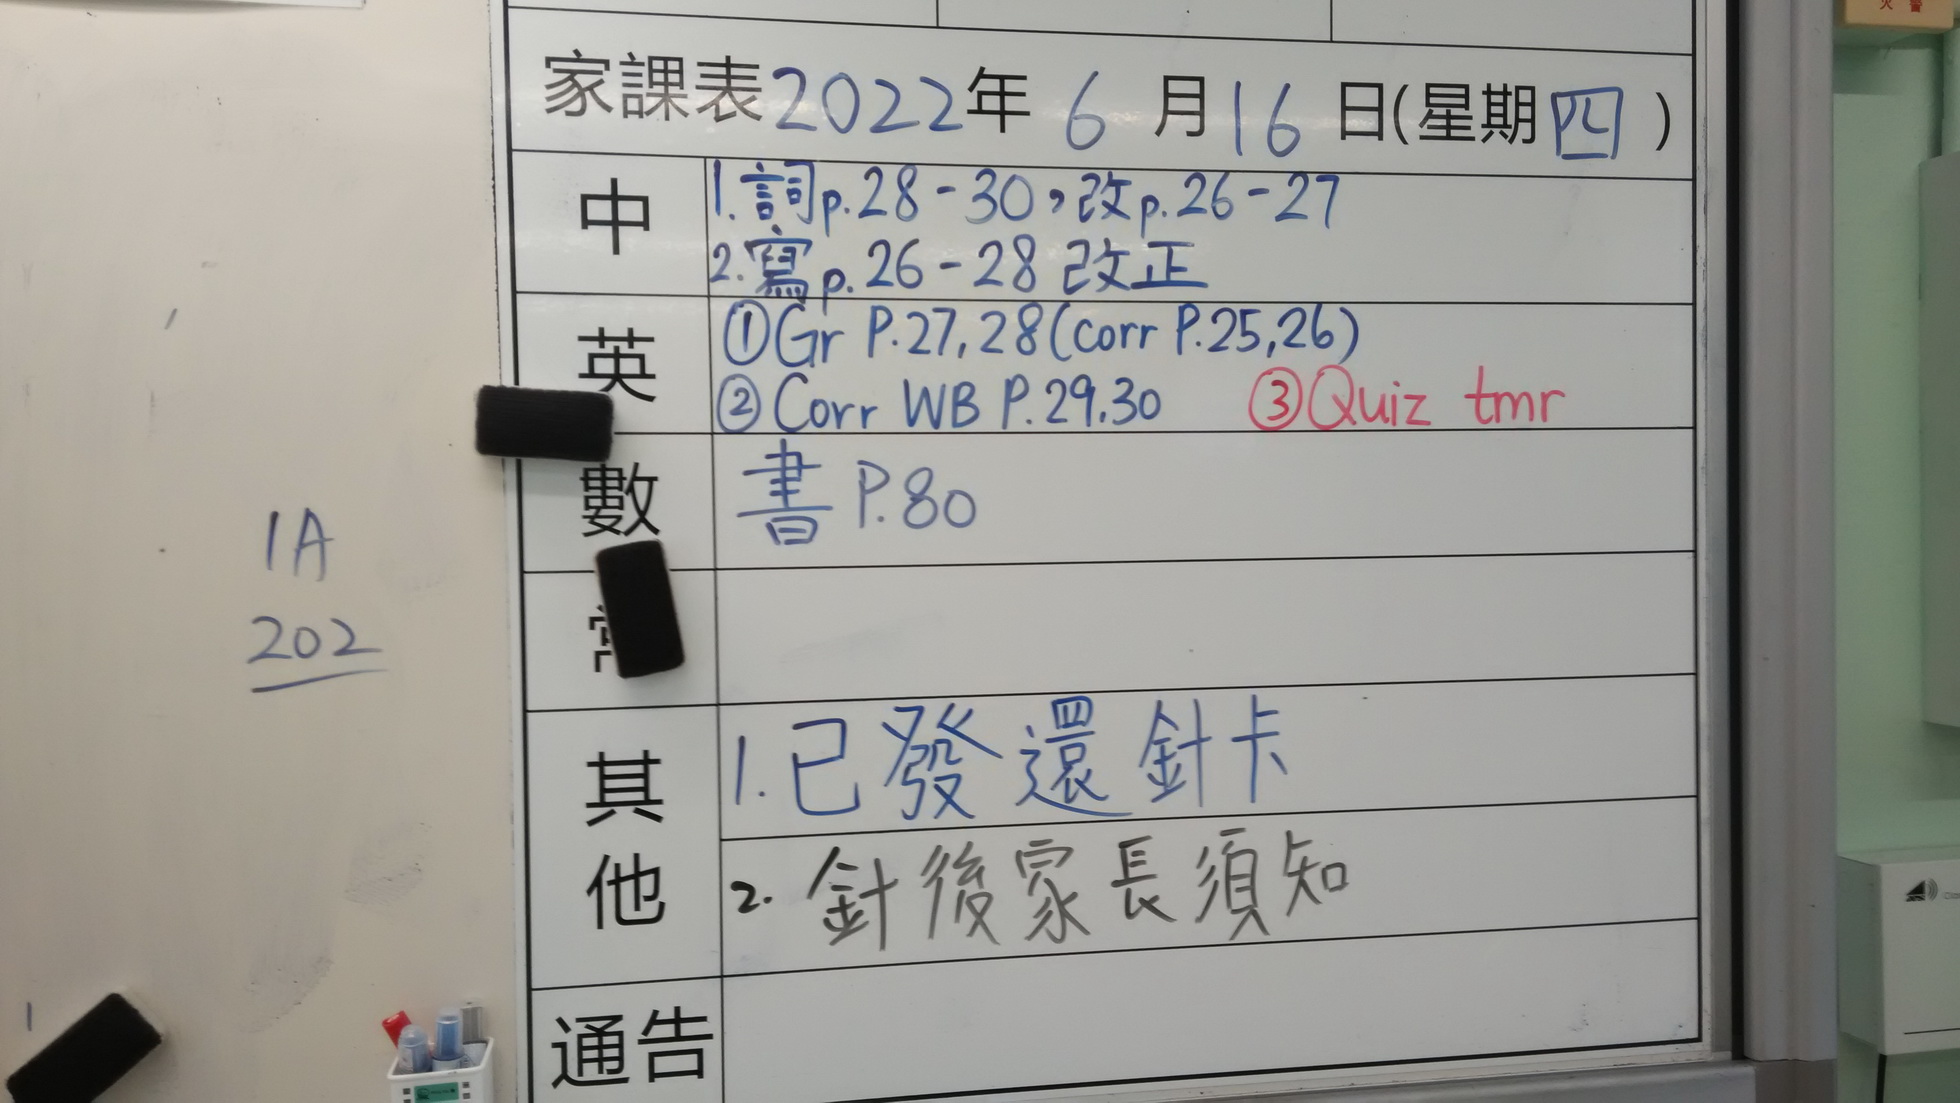 火警
家課表2022年6月16日(星期四)
中
1.詞p.28-30，改p.26-27
2.寫p.26-28改正
英
①Gr P.27,28(corr P.25,26)
②Corr WB P.29.30 ③Quiz tmr
數
書P.80
1A
202
其他
1.已發還針卡
2.針後家長須知
通告